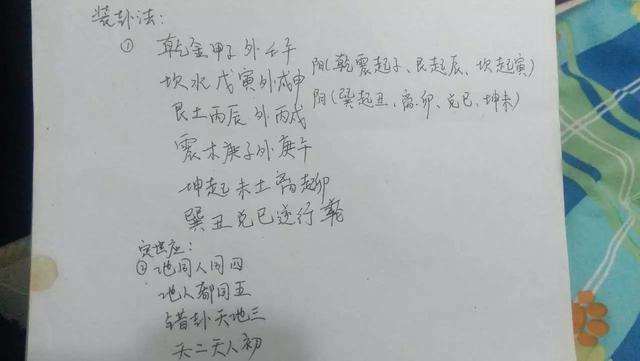 装卦法：
① 乾金甲子外壬午
坎水戊寅外戊申 阳（乾震起子、艮起辰、坎起寅）
艮土丙辰外丙戌 阳（巽起丑、离.卯、兑巳、坤未）
震木庚子外庚午
坤起未土离起卯
巽丑兑巳逆行轮
定世应：
② 地同人同四
地人都同五
错卦天地三
天二天人初